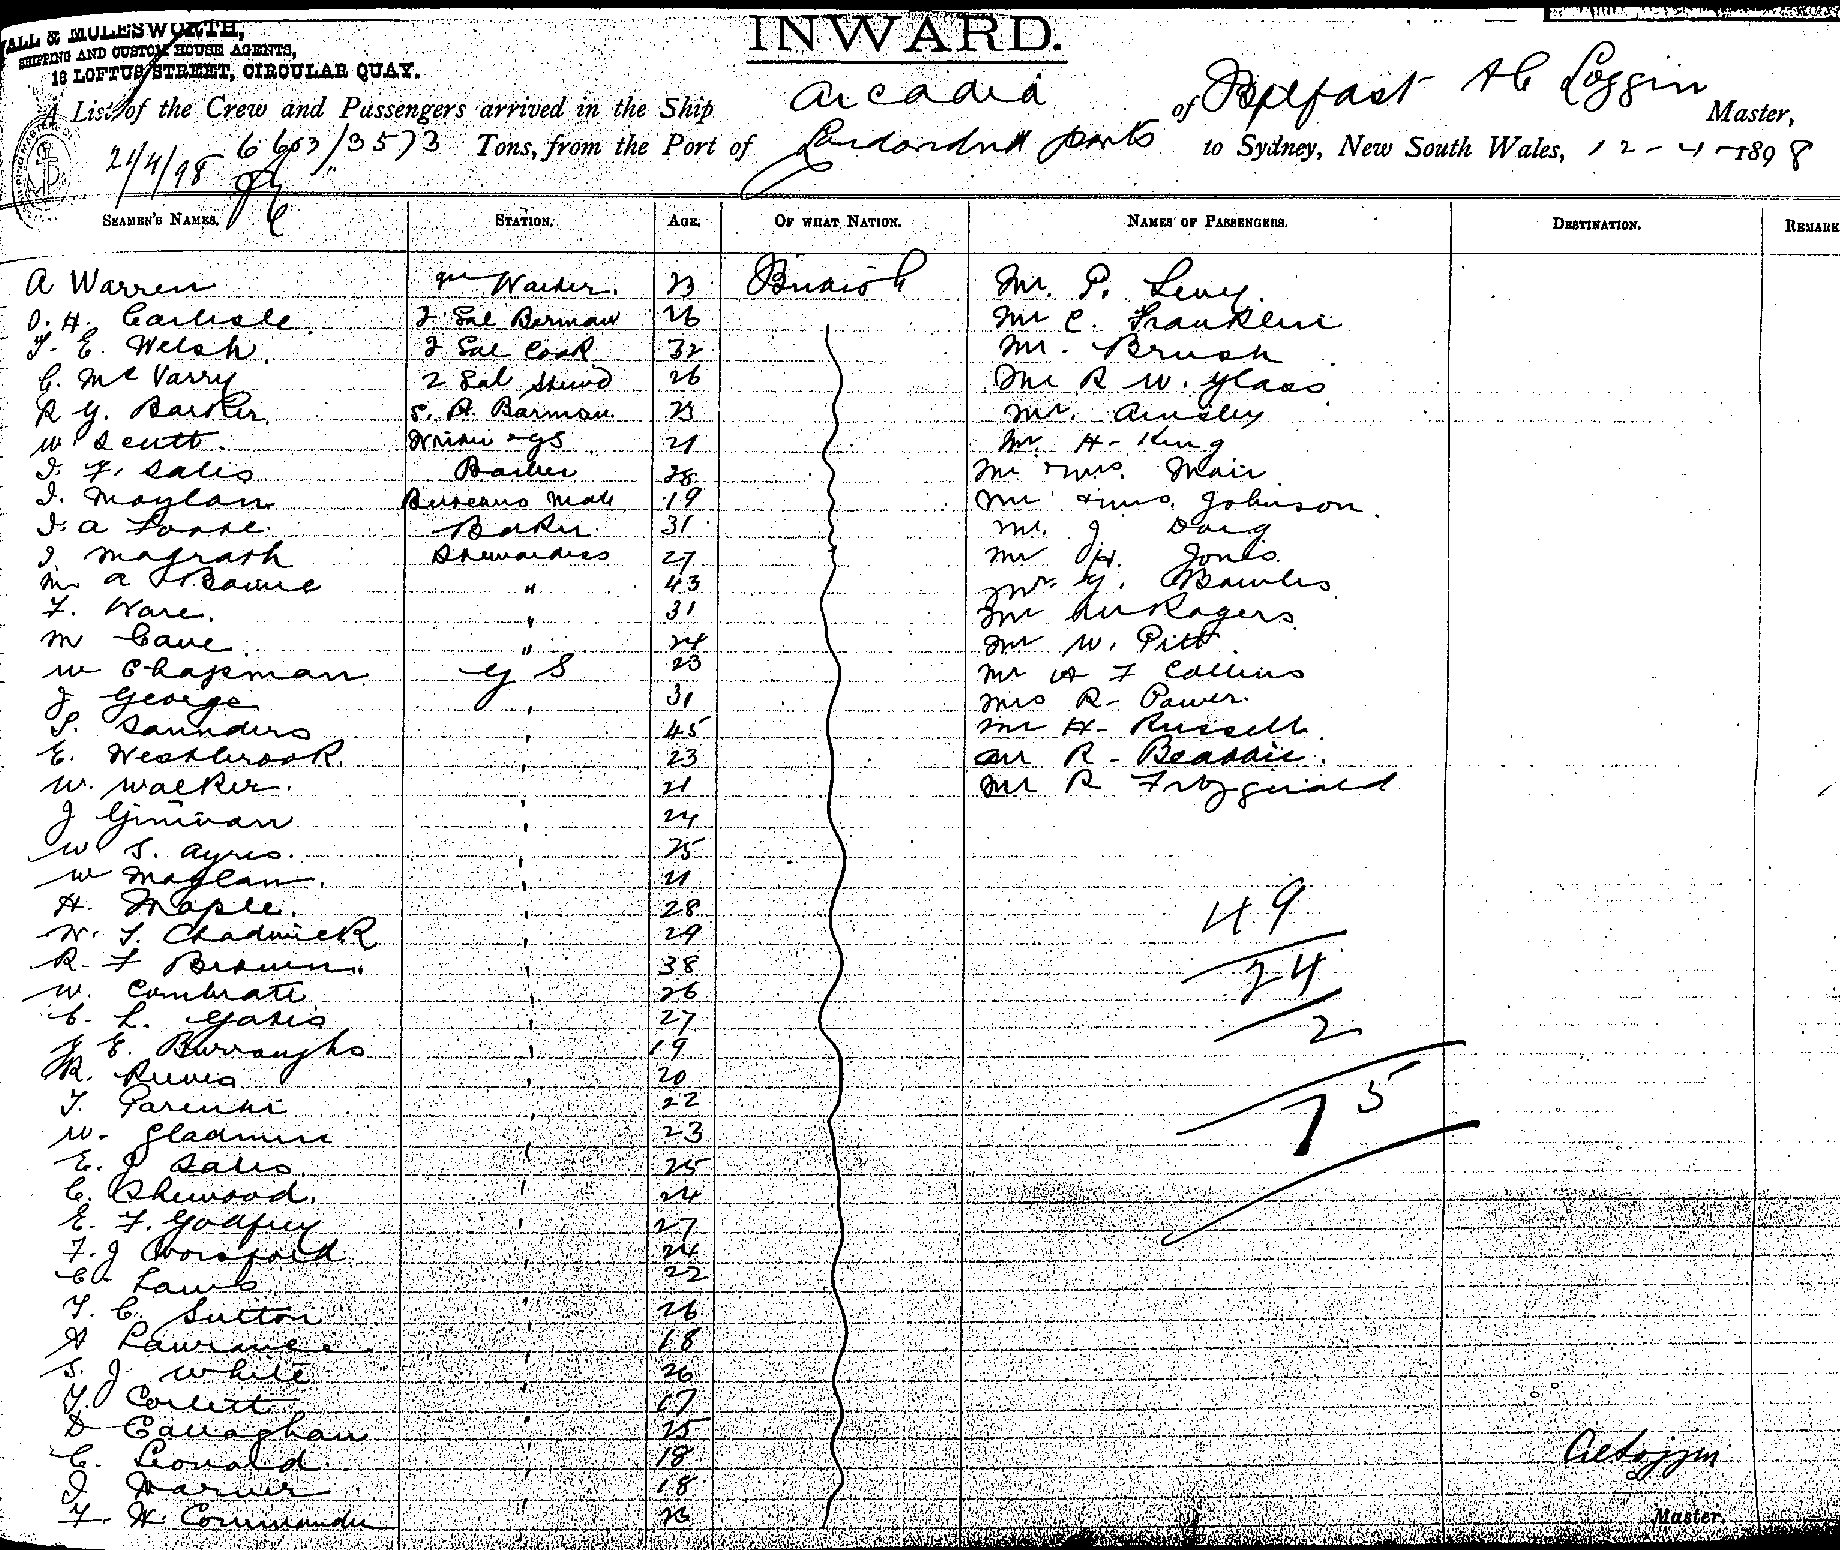 ALL & MULESWORTH,
SHIPPING AND CUSTOM HOUSE AGENTS,
18 LOFTUS STREET, CIRCULAR QUAY.
INWARD.
A List of the Crew and Passengers arrived in the Ship Arcadia of Belfast A C Loggin Master,
21/4/98 6603/3573 Tons, from the Port of London & ports to Sydney, New South Wales, 12-4-1898
SEAMEN'S NAMES. STATION. AGE. OF WHAT NATION. NAMES OF PASSENGERS. DESTINATION. REMARK
A Warren 23 British Mr. P. Levy
O. H. Carlisle 2 Sal Barman 26 Mr C. Franklin
T. E. Welsh 2 Sal Cook 32 Mr. Brush
C. McVarry 2 Sal Stewd 26 Mr R W. Glass
R G. Barker S. R. Barman 23 Mr. Ainsley
W Scutt 21 Mr H. King
J. F. Sales Barber 28 Mr & Mrs. Mair
J. Moylan Bureaus Mate 19 Mr & Mrs. Johnson
J. A Loosl Baker 31 Mr. J Doig
J Magrath Stewardess 27 Mr H. Jones
M. A Bowne " 43 Mr. G. Bowles
F. Ware " 31 Mr Rogers
M Cave " 24 Mr W. Pitt
W Chapman G S 23 Mr A F Collins
J George " 31 Mrs R. Power
S. Saunders " 45 Mr H. Russell
E. Westbrook " 23 Mr R. Beattie
W. Walker " 21 Mr R Fitzgerald
J Ginivan " 24
W S. Ayres " 25
W Moylan " 21
H. Maple " 28 49
W. T. Chadwick " 29
R. F Brown " 38 24
W. Combrate " 26
C. L. Gates " 27 2
J E. Burroughs " 19
R. Reeves " 20 75
T. " 22
W. Gladwin " 23
E. J Sales " 25
C. Sherwood " 24
E. F. Godfrey " 27
F. J Worsfold " 24
C. Laws " 22
T. C. Sutton " 26
A Lawrance " 18
S. J White " 26
T. Corlett " 17
D Callaghan " 25
C. Leonard " 18 A C Loggin
J Warner " 18
F. W. Commander " 23 Master.